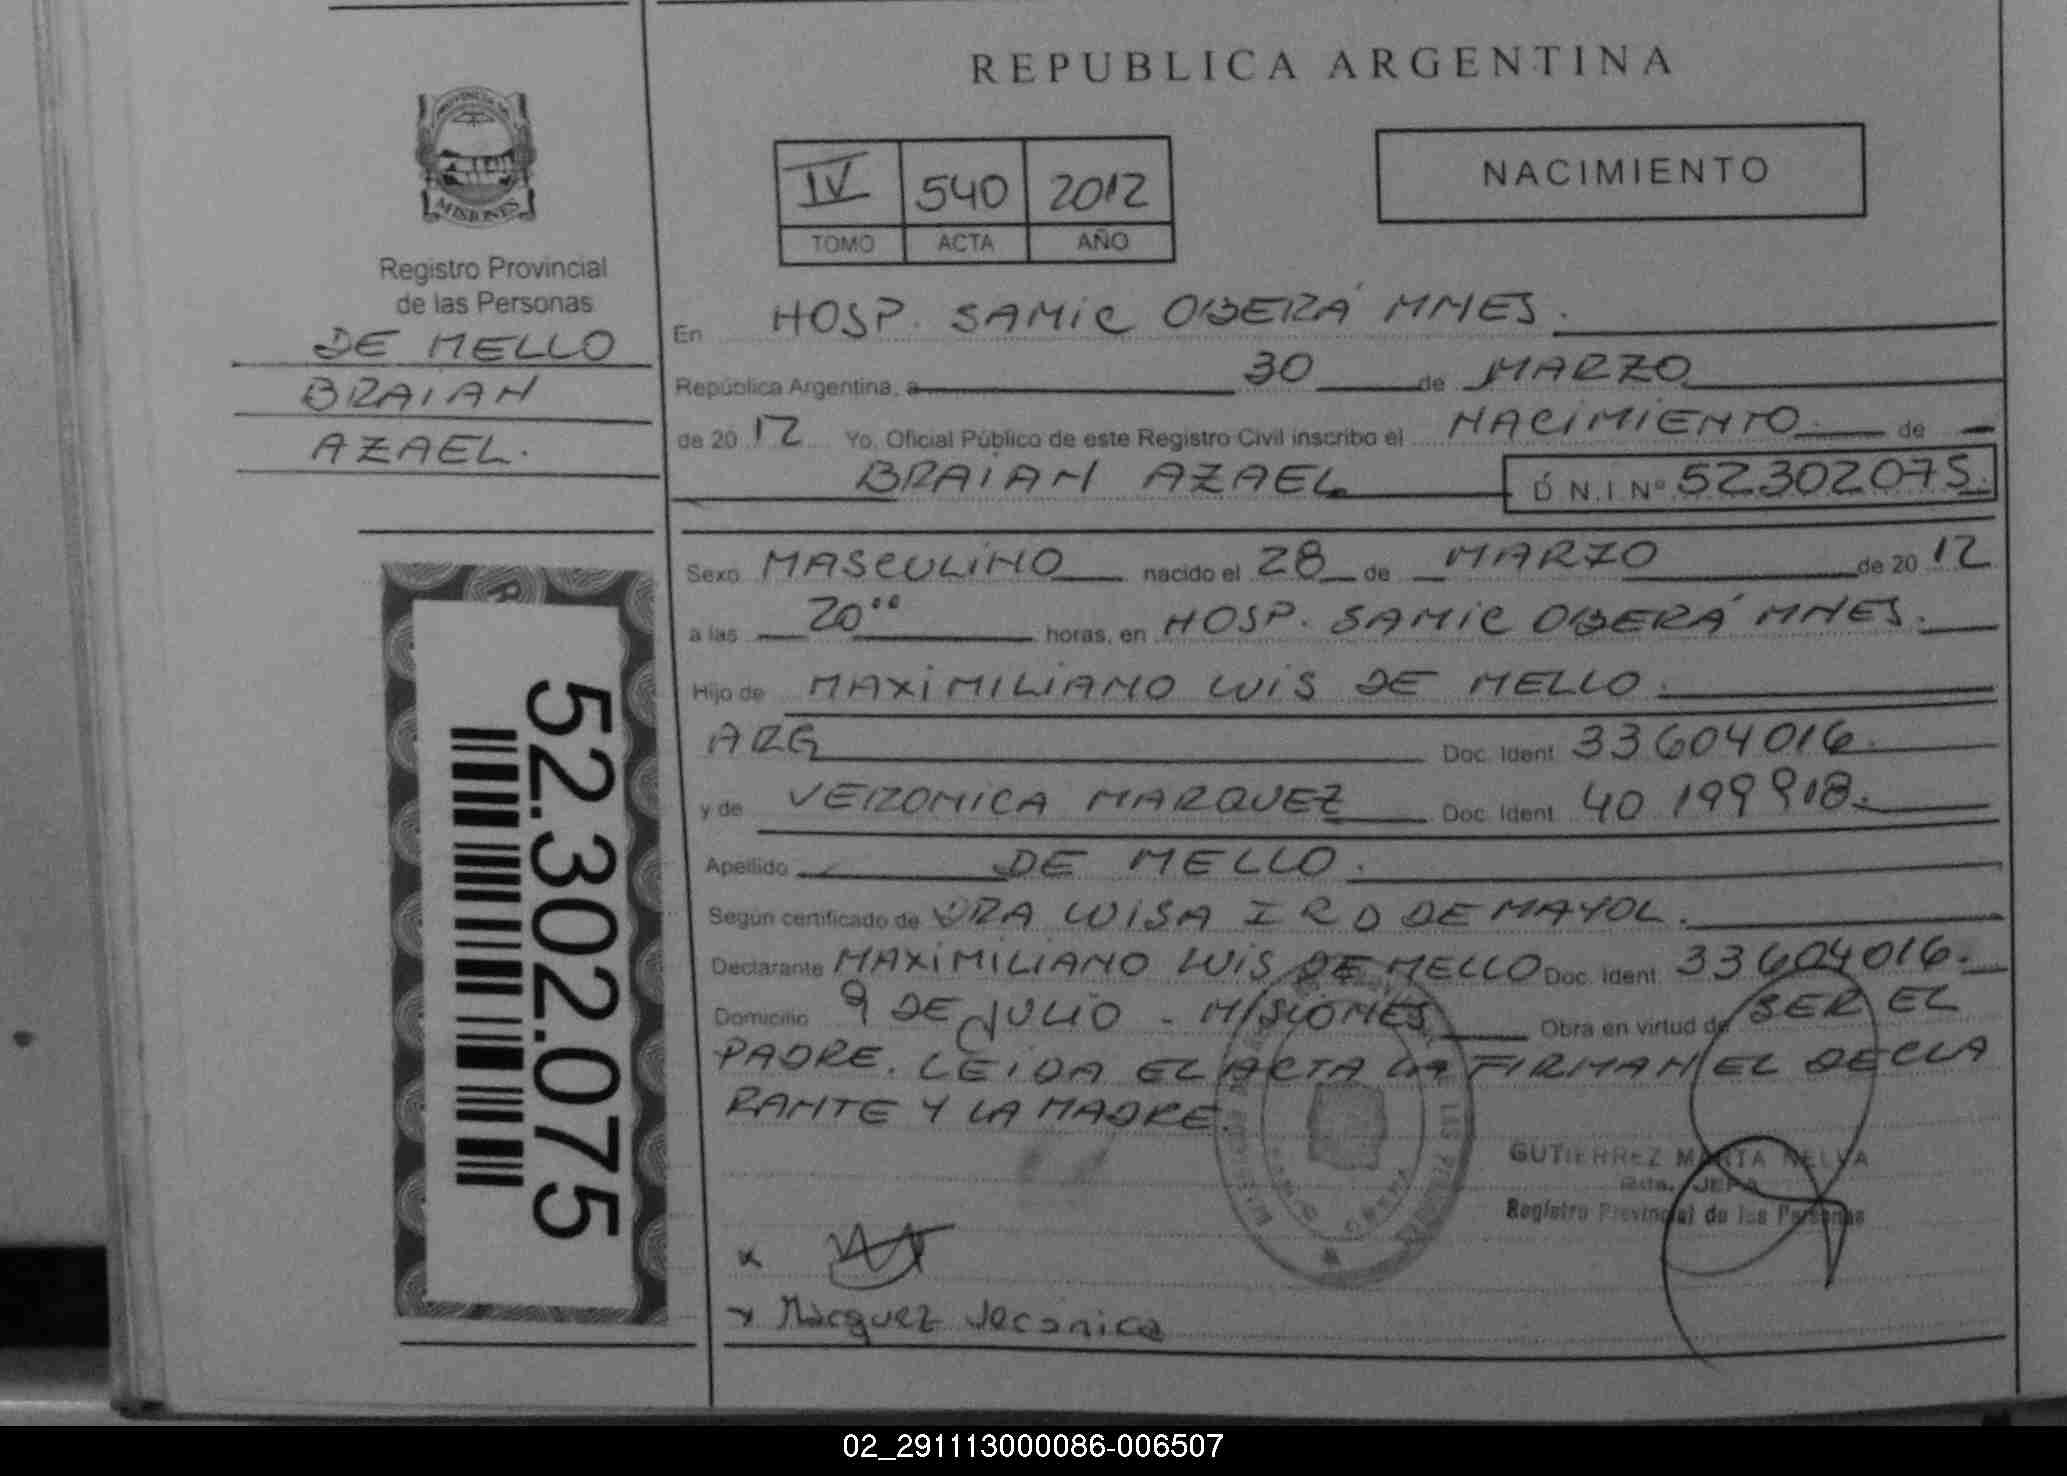 REPUBLICA ARGENTINA
NACIMIENTO
IV 540 2012
TOMO ACTA AÑO
MISIONES
Registro Provincial
de las Personas
DE MELLO
BRAIAN
AZAEL.
52.302.075
En HOSP. SAMIC OBERÁ MNES.
República Argentina, a 30 de MARZO
de 2012 Yo. Oficial Público de este Registro Civil inscribo el NACIMIENTO. de
BRAIAN AZAEL D N.I Nº 52302075.
Sexo MASCULINO nacido el 28 de MARZO de 2012
a las 20°° horas, en HOSP. SAMIC OBERÁ MNES.
Hijo de MAXIMILIANO LUIS DE MELLO.
ARG Doc. Ident. 33604016.
y de VERONICA MARQUEZ Doc. Ident. 40 199918.
Apellido DE MELLO.
Según certificado de DRA LUISA I R D DE MAYOL.
Declarante MAXIMILIANO LUIS DE MELLO Doc. Ident. 33604016.
Domicilio 9 DE JULIO - MISIONES Obra en virtud de SER EL
PADRE. LEIDA EL ACTA LA FIRMAN EL DECLA
RANTE Y LA MADRE.
GUTIERREZ MARTA NELVA
JEFA
Registro Provincial de las Personas
x
x Marquez Veronica
02_291113000086-006507